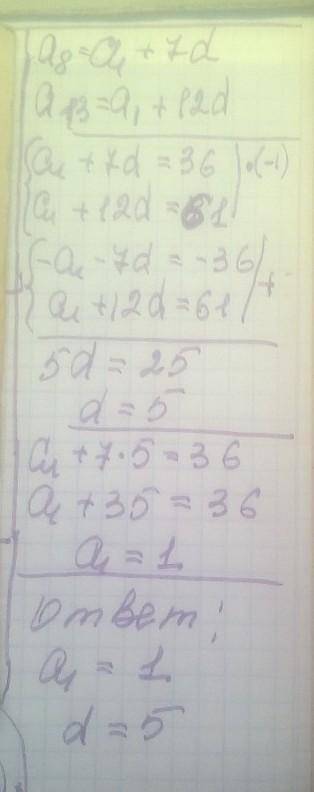 a₈ = a₁ + 7d
a₁₃ = a₁ + 12d
a₁ + 7d = 36 | · (-1)
a₁ + 12d = 61
-a₁ - 7d = -36 | +
a₁ + 12d = 61
5d = 25
d = 5
a₁ + 7·5 = 36
a₁ + 35 = 36
a₁ = 1
Ответ:
a₁ = 1
d = 5